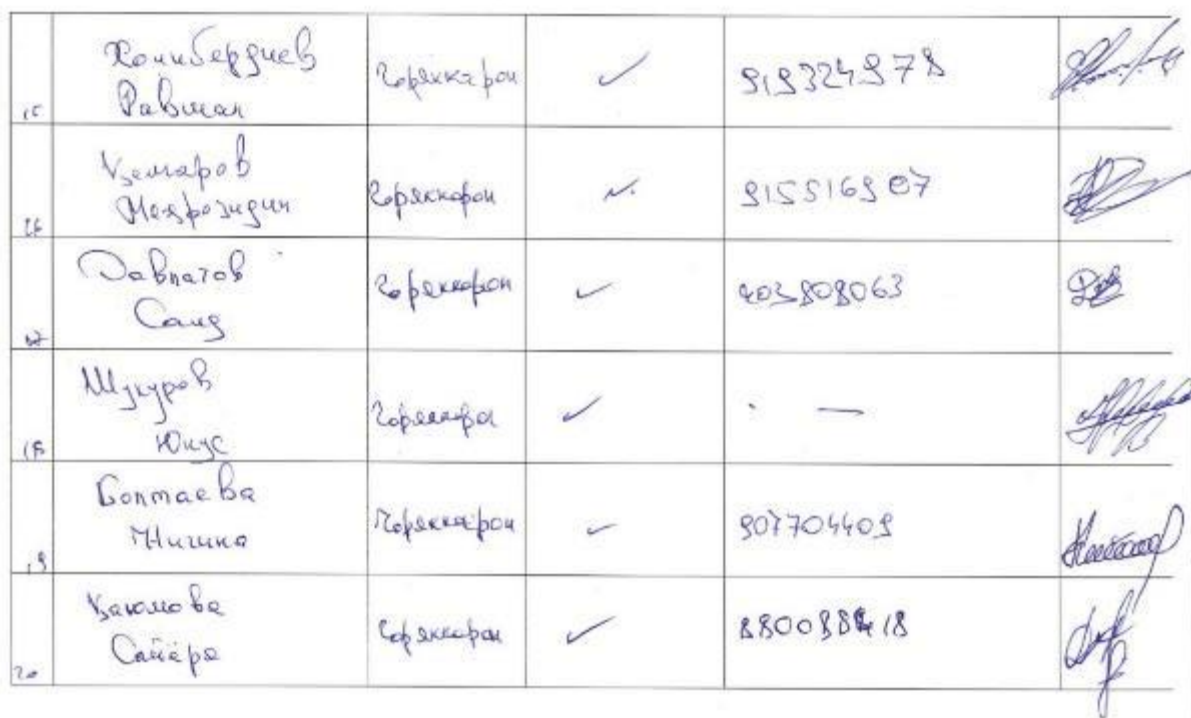 15 Холибердиев Равшан Чоряккорон ✓ 919324978
16 Қамаров Мехрозидин Чоряккорон ✓ 915516907
17 Давлатов Саид Чоряккорон ✓ 903808063
18 Шукуров Юнус Чоряккорон ✓ —
19 Болтаева Нигина Чоряккорон ✓ 907704409
20 Қаюмова Сайёра Чоряккорон ✓